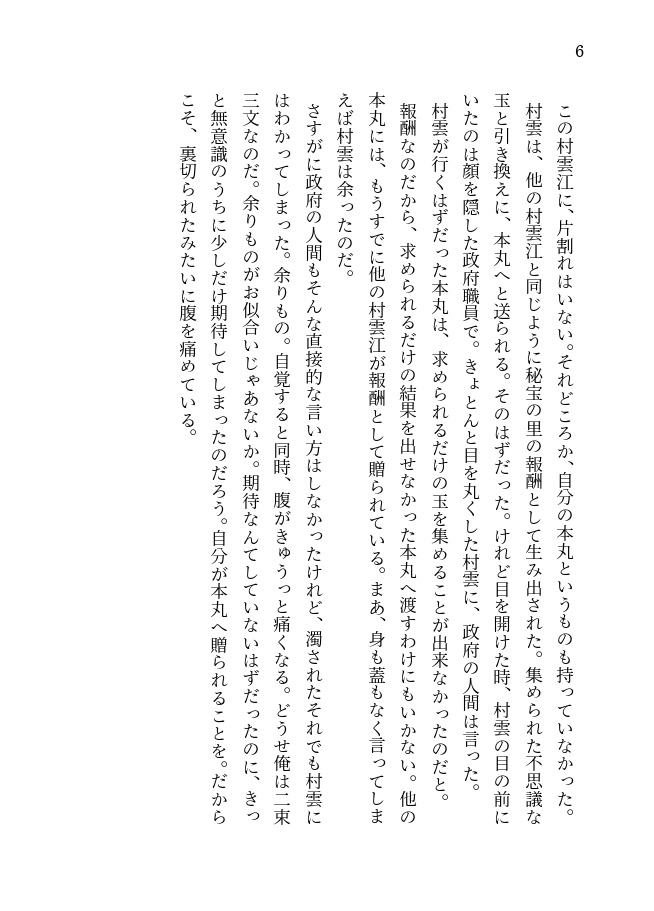 6
この村雲江に、片割れはいない。それどころか、自分の本丸というものも持っていなかった。
村雲は、他の村雲江と同じように秘宝の里の報酬として生み出された。集められた不思議な
玉と引き換えに、本丸へと送られる。そのはずだった。けれど目を開けた時、村雲の目の前に
いたのは顔を隠した政府職員で。きょとんと目を丸くした村雲に、政府の人間は言った。
村雲が行くはずだった本丸は、求められるだけの玉を集めることが出来なかったのだと。
報酬なのだから、求められるだけの結果を出せなかった本丸へ渡すわけにもいかない。他の
本丸には、もうすでに他の村雲江が報酬として贈られている。まあ、身も蓋もなく言ってしま
えば村雲は余ったのだ。
さすがに政府の人間もそんな直接的な言い方はしなかったけれど、濁されたそれでも村雲に
はわかってしまった。余りもの。自覚すると同時、腹がきゅうっと痛くなる。どうせ俺は二束
三文なのだ。余りものがお似合いじゃあないか。期待なんてしていないはずだったのに、きっ
と無意識のうちに少しだけ期待してしまったのだろう。自分が本丸へ贈られることを。だから
こそ、裏切られたみたいに腹を痛めている。